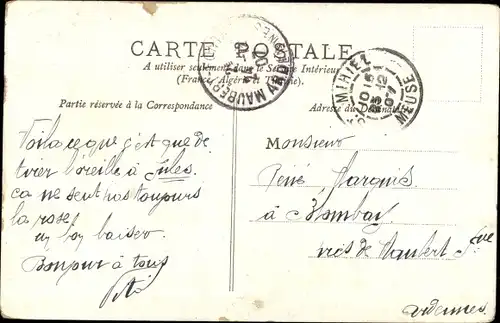 CARTE POSTALE
A utiliser seulement dans le Service Intérieur
(France, Algérie et Tunisie).
Partie réservée à la Correspondance
Adresse du Destinataire
MIHIEL
MEUSE
Voila ce que c'est que de
tirer l'oreille à Jules
ça ne sent pas toujours
la rose!
un bon baiser
Bonjour à tous
Monsieur
René Marquis
à
près de Maubert
Ardennes